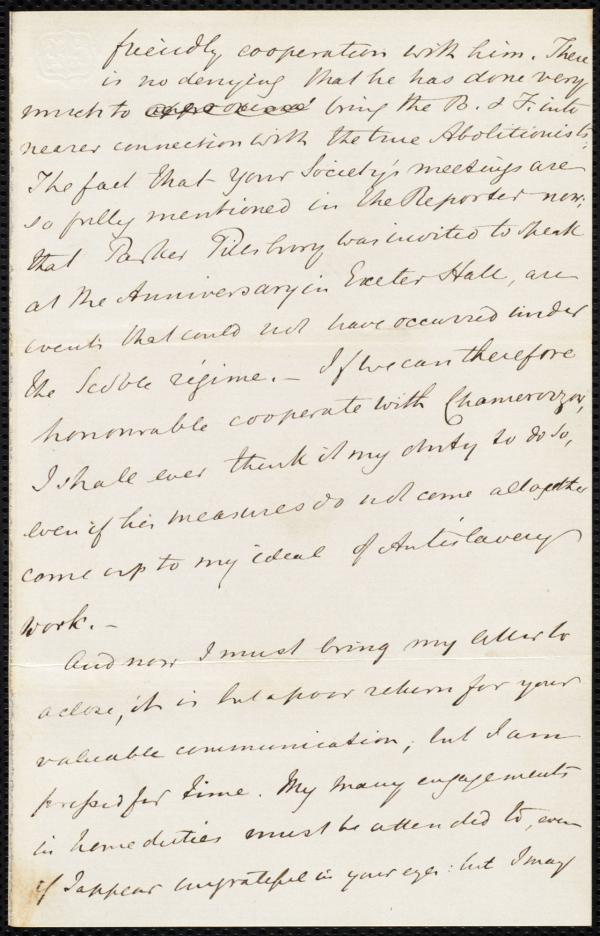 friendly cooperation with him. There
is no denying that he has done very
much to bring the B. & F. into
nearer connection with the true Abolitionists.
The fact that your Society's meetings are
so fully mentioned in the Reporter now;
that Parker Pilsbury was invited to speak
at the Anniversary in Exeter Hall, are
events that could not have occurred under
the Scoble régime. — If we can therefore
honourable cooperate with Chamerovzow,
I shall ever think it my duty to do so,
even if his measures do not come altogether
come up to my ideal of Antislavery
work. —
And now I must bring my letter to
a close, it is but a poor return for your
valuable communication; but I am
pressed for time. My many engagements
in home duties must be attended to, even
if I appear ungrateful in your eyes: but I may